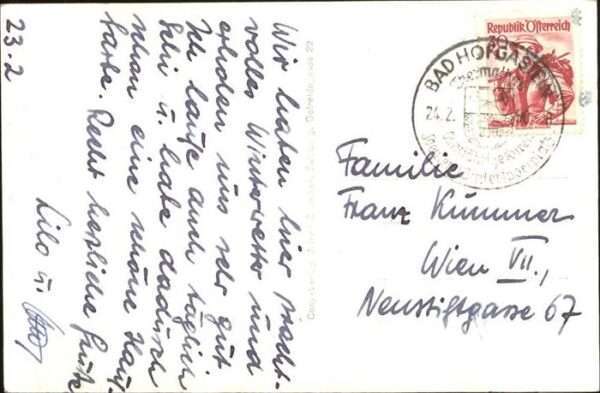 23.2
Wir haben hier pracht-
volles Winterwetter und
erholen uns sehr gut
Ich laufe auch täglich
Schi u. habe dadurch
schon eine schöne Haut-
farbe. Recht herzliche Grüße
Lilo u.
Republik Österreich
BAD HOFGASTEIN
Thermalbad
24.2.
Familie
Franz Kummer
Wien VII.,
Neustiftgasse 67